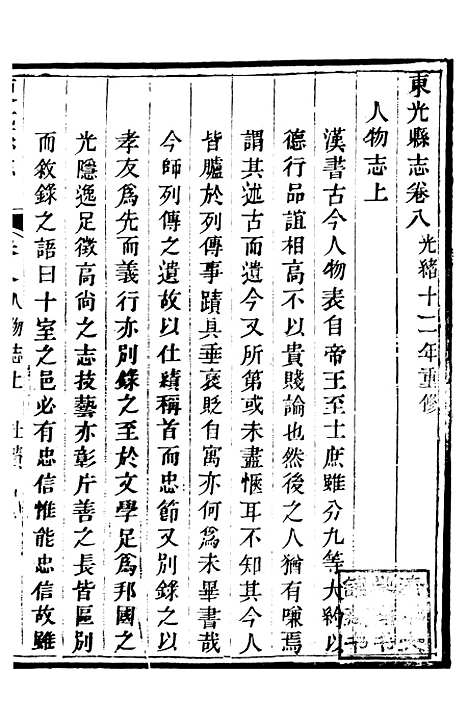 東光縣志卷八光緒十二年重修
人物志上
漢書古今人物表自帝王至士庶雖分九等大約以
德行品誼相高不以貴賤論也然後之人猶有嗛焉
謂其述古而遺今又所第或未盡愜耳不知其今人
皆臚於列傳事蹟具垂褒貶自寓亦何為未畢書哉
今師列傳之遺故以仕蹟稱首而忠節又別錄之以
孝友為先而義行亦別錄之至於文學足為邦國之
光隱逸足徵高尚之志技藝亦彰片善之長皆區別
而敘錄之語曰十室之邑必有忠信惟能忠信故雖
人物志上